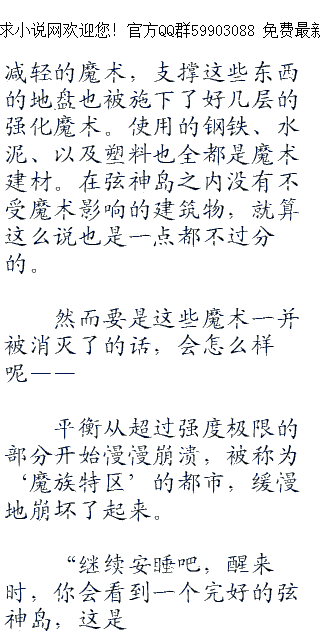 求小说网欢迎您！官方QQ群59903088 免费最新
减轻的魔术，支撑这些东西
的地盘也被施下了好几层的
强化魔术。使用的钢铁、水
泥、以及塑料也全都是魔术
建材。在弦神岛之内没有不
受魔术影响的建筑物，就算
这么说也是一点都不过分
的。
然而要是这些魔术一并
被消灭了的话，会怎么样
呢——
平衡从超过强度极限的
部分开始慢慢崩溃，被称为
‘魔族特区’的都市，缓慢
地崩坏了起来。
“继续安睡吧，醒来
时，你会看到一个完好的弦
神岛，这是